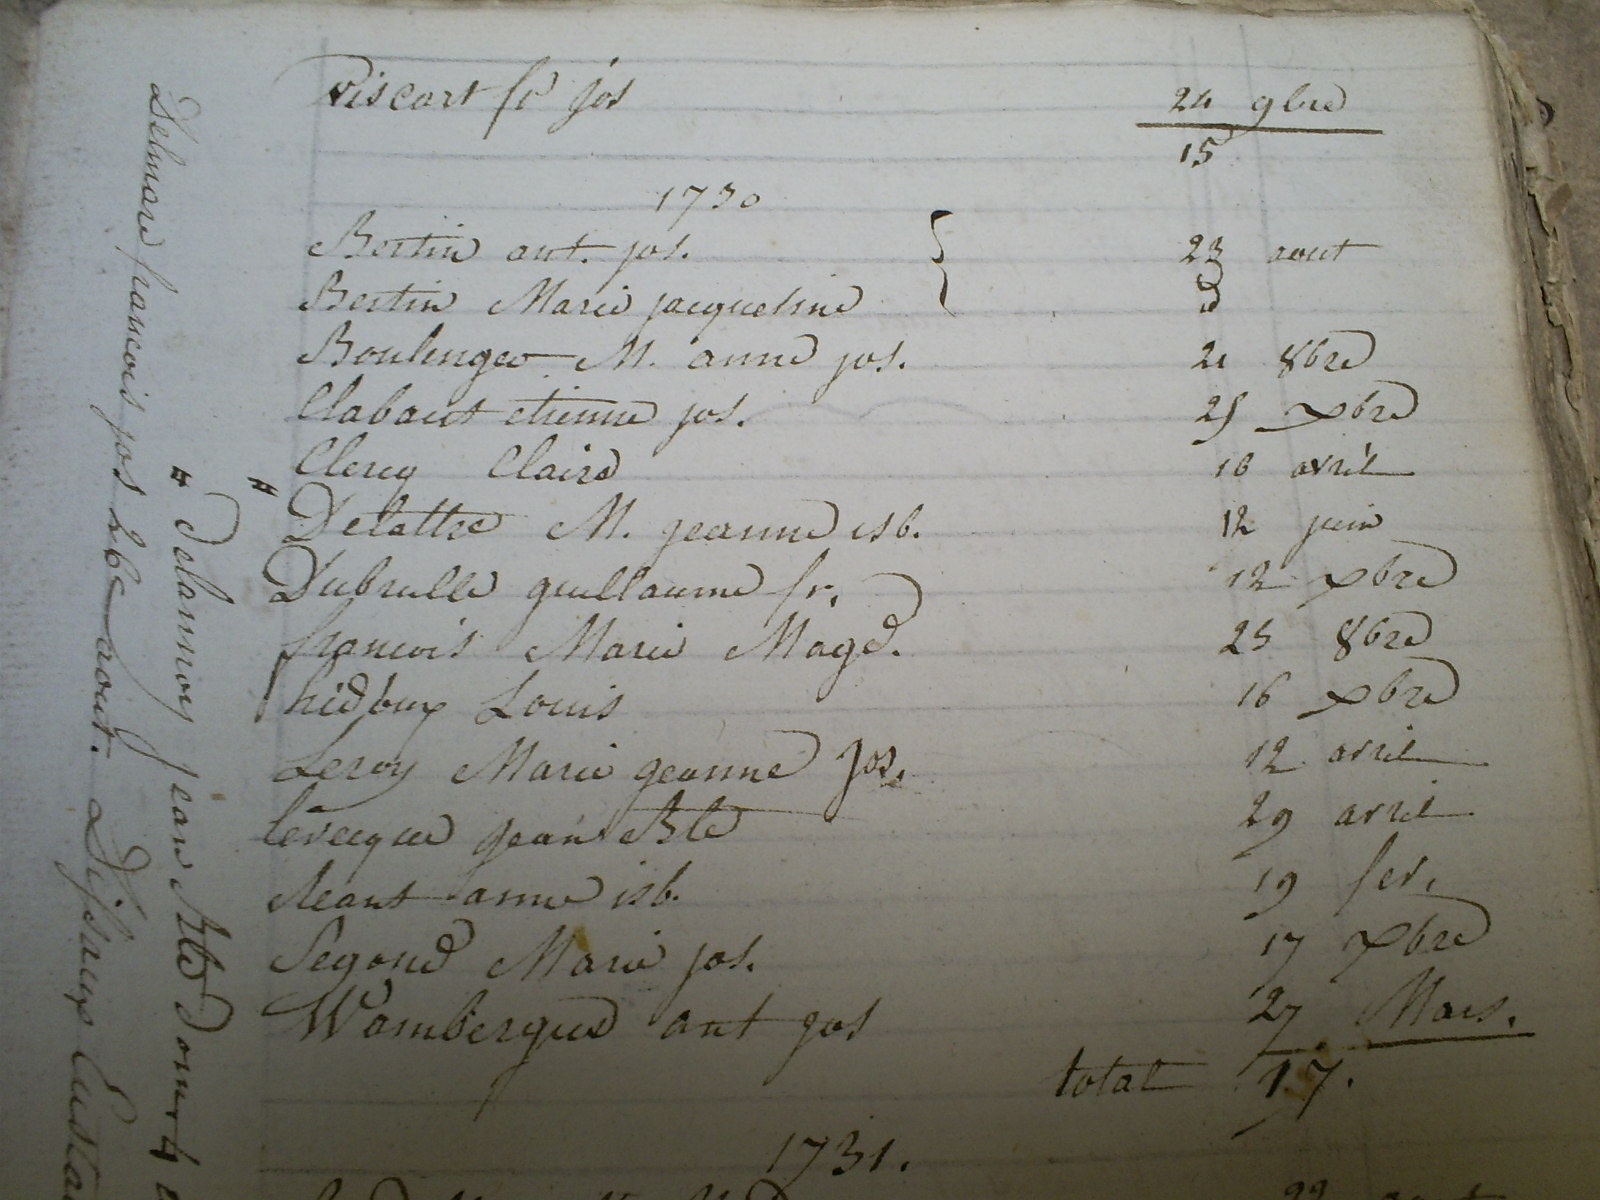 Viscart fr jos 24 9bre
15
1730
Bertin ant. jos. 23 aout
Bertin Marie jacqueline d
Boulenger M. anne jos. 21 8bre
Clabaut etienne jos. 25 xbre
Clercq Claire 16 avril
# Delattre M. jeanne isb. 12 juin
Dubrulle guillaume fr. 12 xbre
francois Marie Magd. 25 8bre
hidoux Louis 16 xbre
Leroy Marie jeanne Jos. 12 avril
levecque jean Bte 29 avril
Leant anne isb. 19 fev.
Segond Marie jos. 17 xbre
Wambergue ant jos 27 Mars.
total 17.
1731.
Delmare francois jos 26 aout. Dissaux Eusta
# delannoy jean Bte